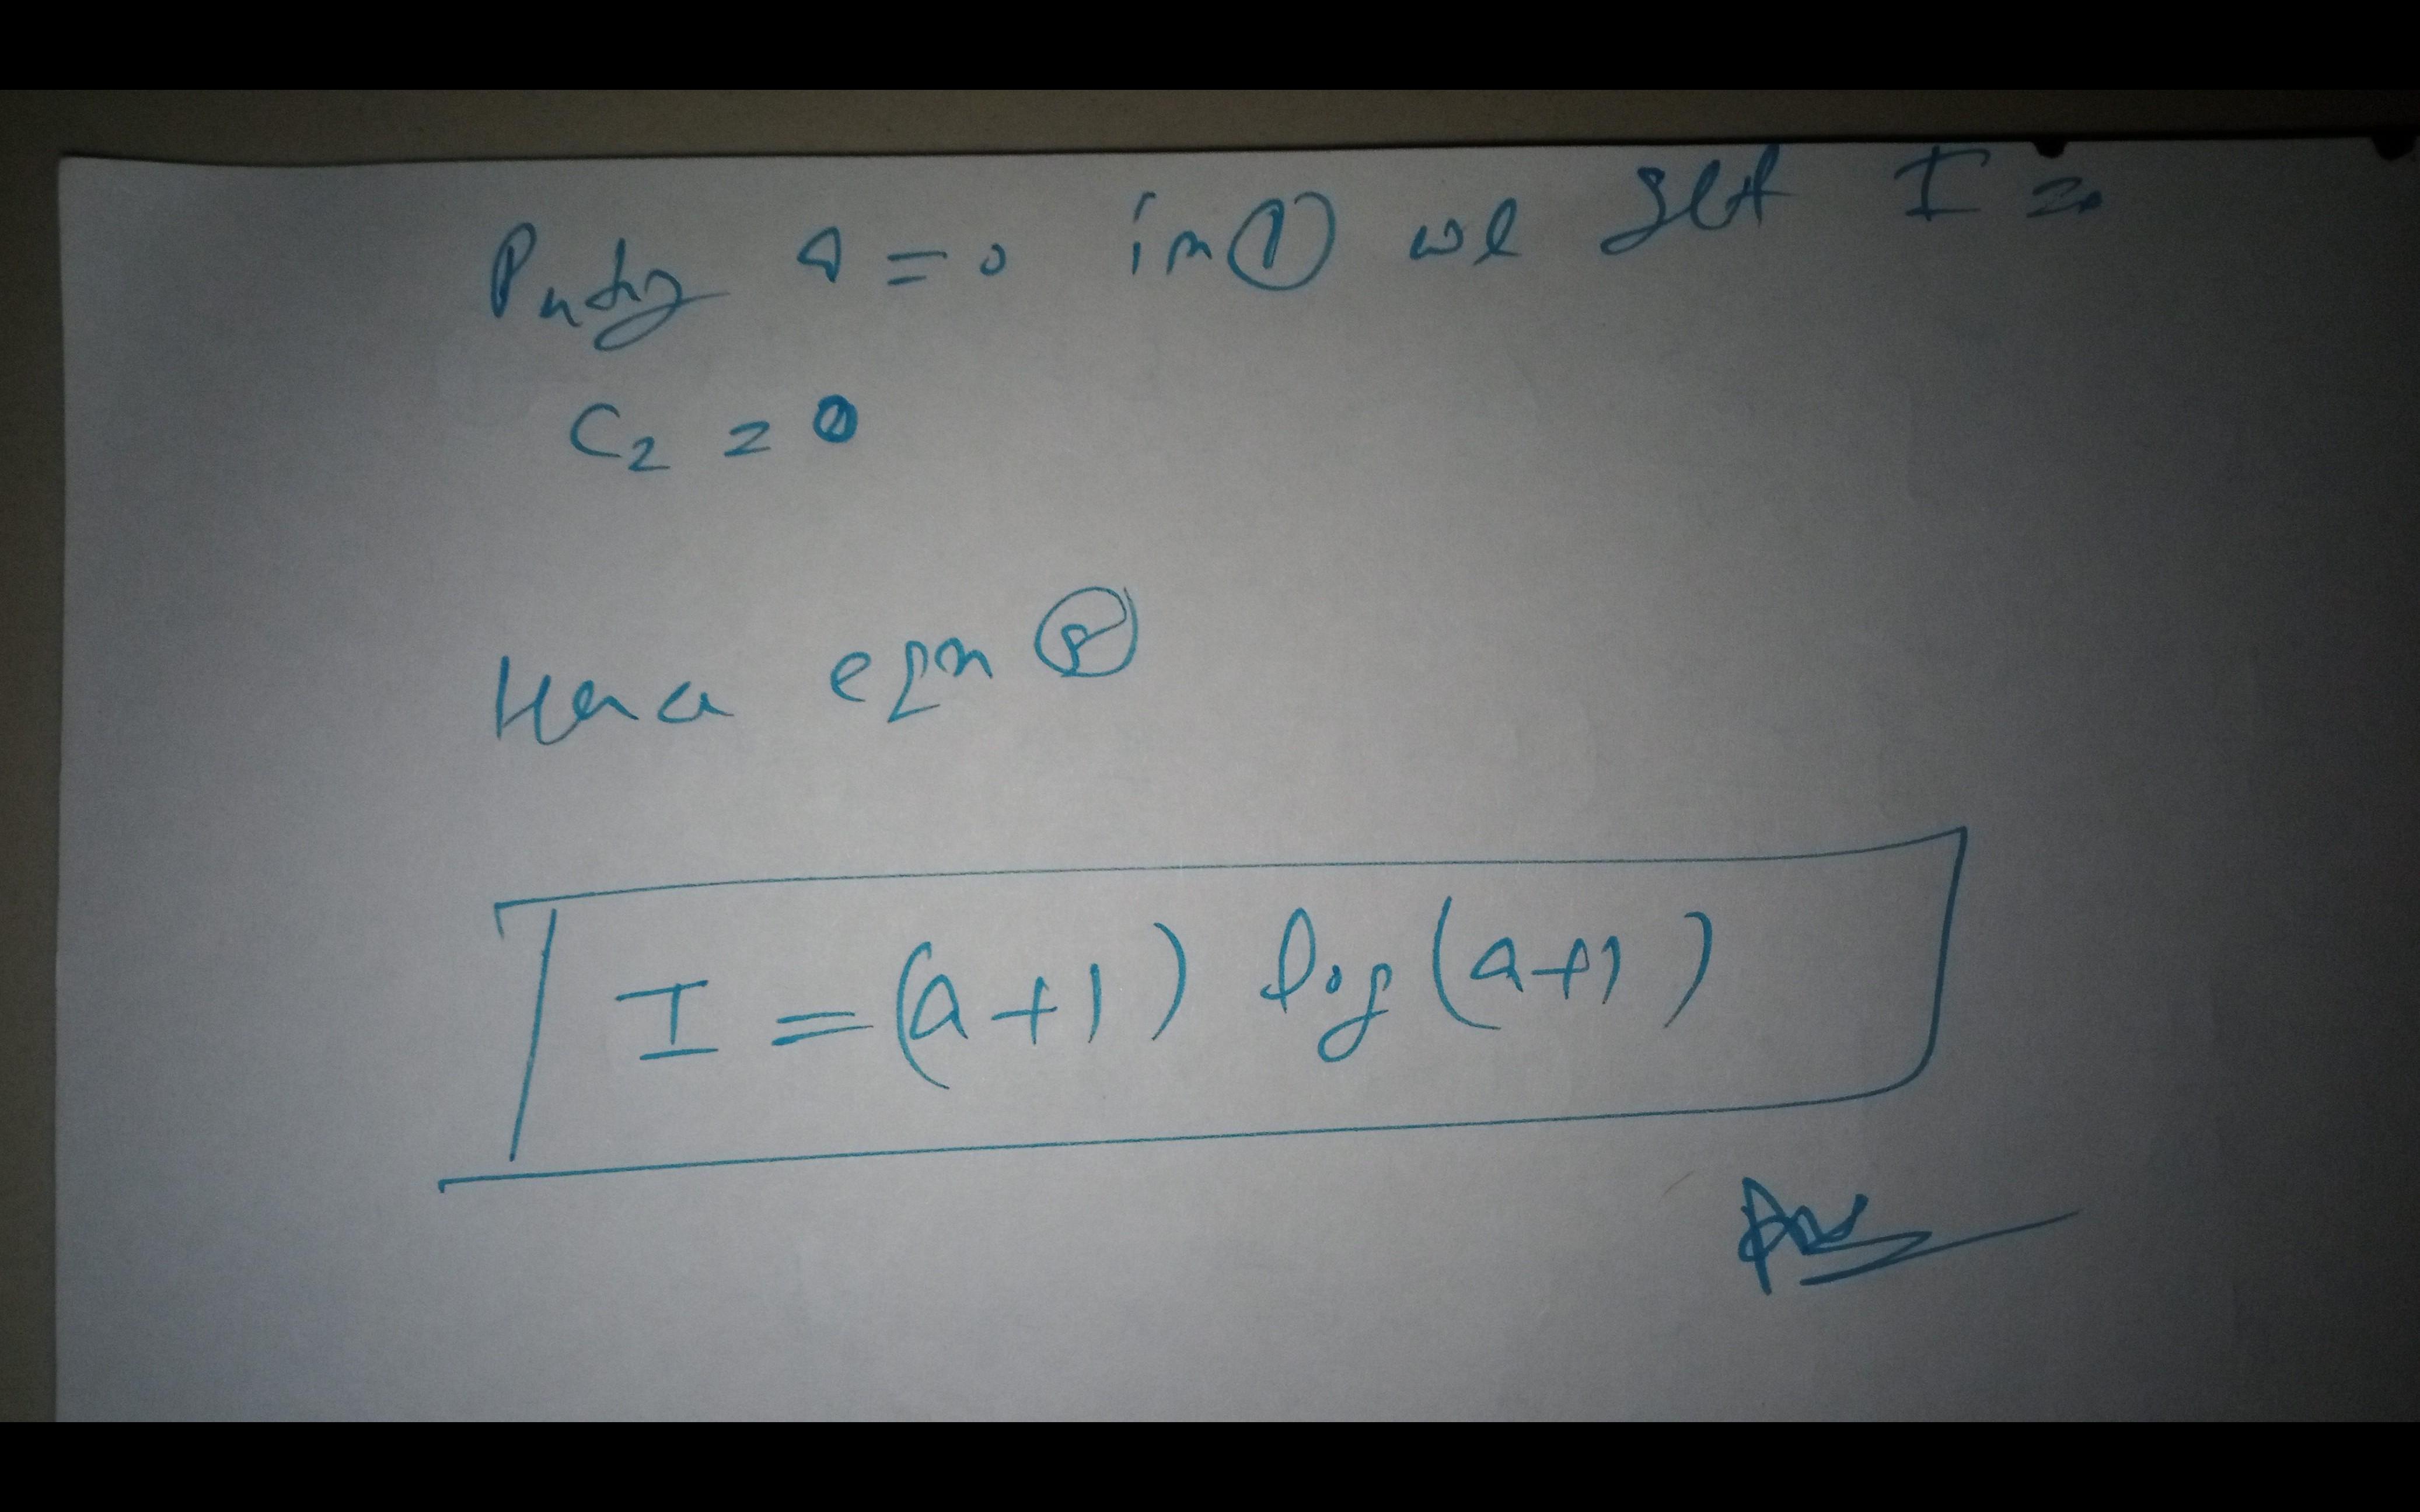 Puting a = 0 in ① we get I =
C₂ = 0
Hence eqn
I = (a+1) log (a+1)
Ans